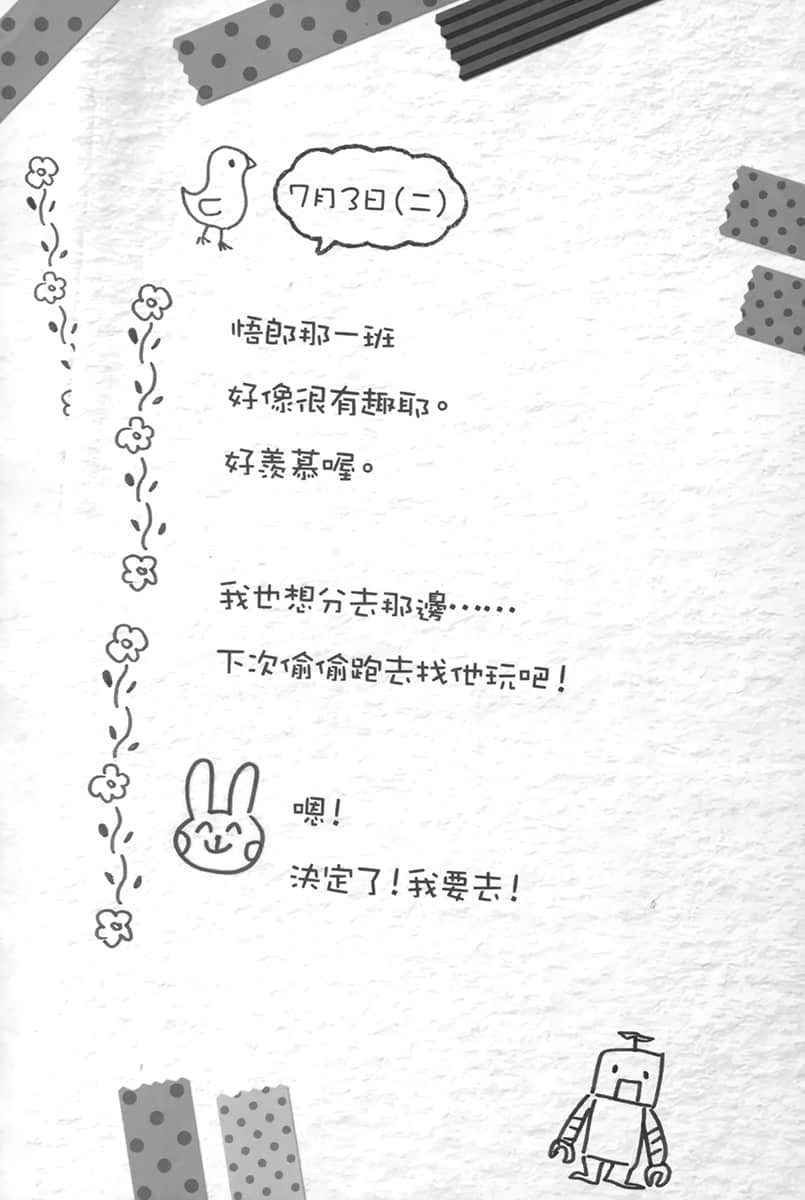 7月3日(二)
悟郎那一班
好像很有趣耶。
好羨慕喔。
我也想分去那邊⋯⋯
下次偷偷跑去找他玩吧!
嗯!
決定了!我要去!